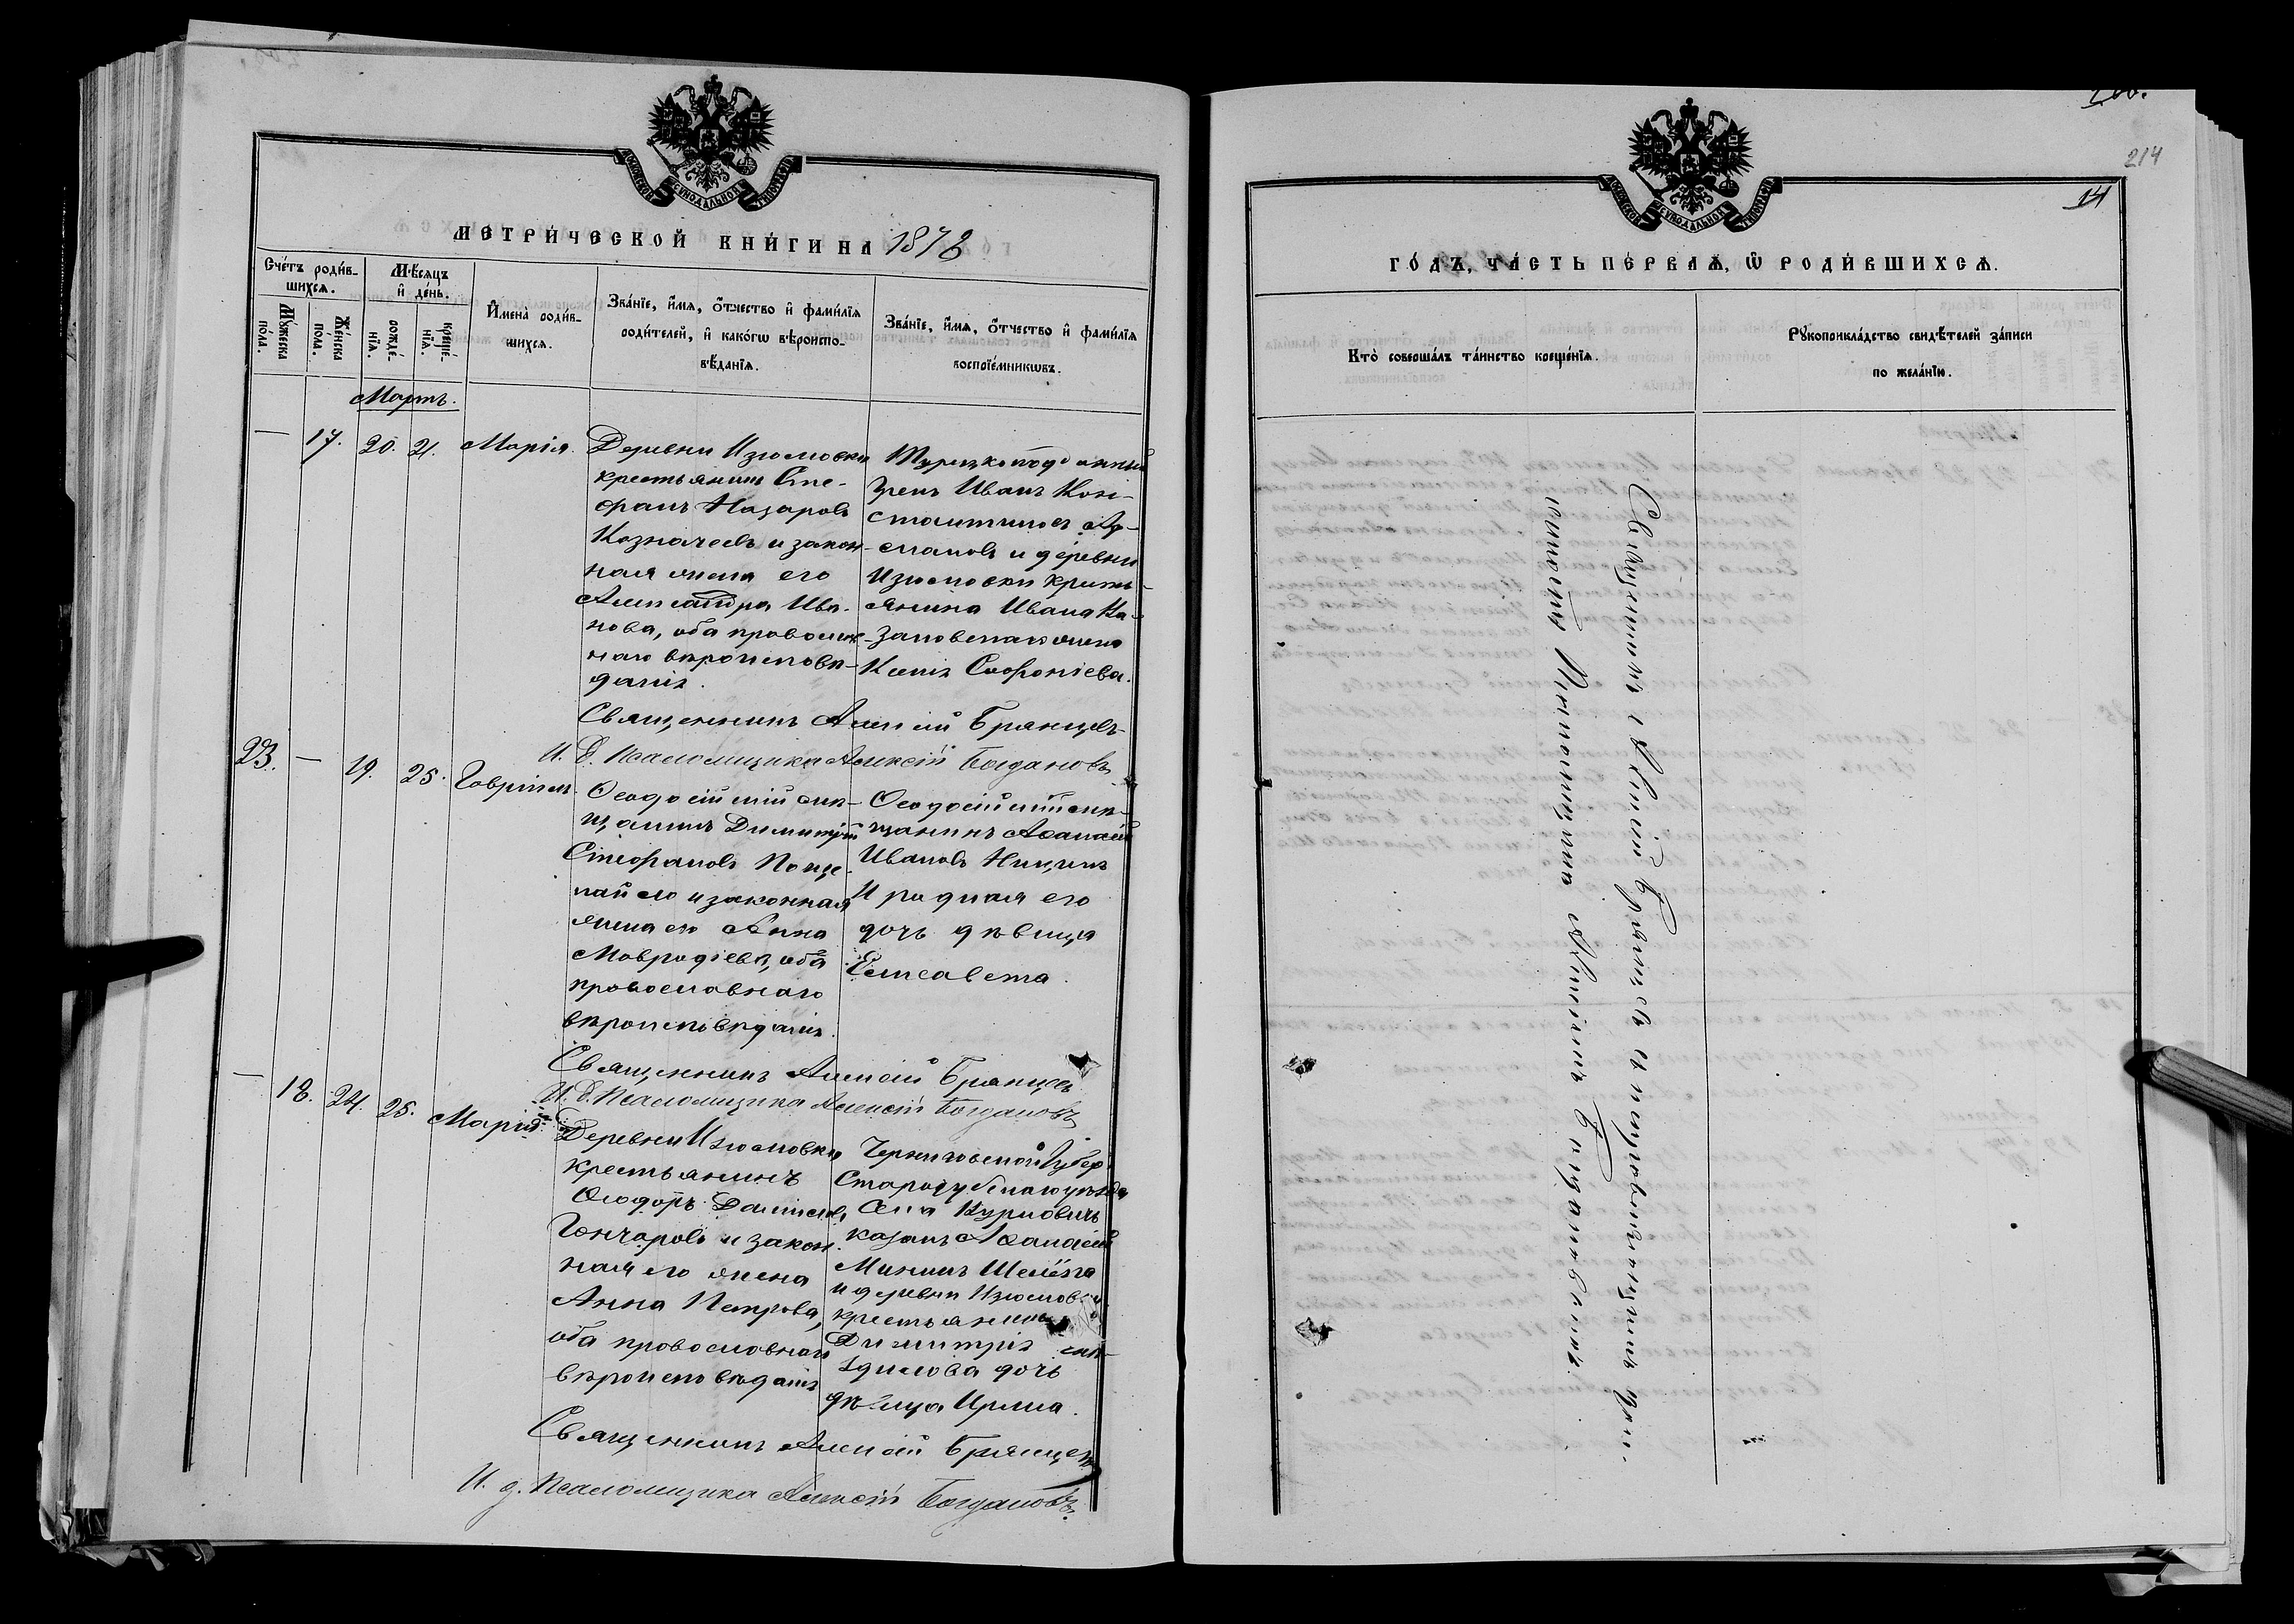 МОСКОВСКОЙ СѴНОДАЛЬНОЙ ТИПОГРАФІИ
МЕТРИ́ЧЕСКОЙ КНИ́ГИ НА 1878
Сче́тъ роди́в-
шихсѧ.
Мѣ́сѧцъ
и҆ де́нь.
Мꙋ́жеска
по́ла.
Же́нска
по́ла.
рожде́-
нїѧ.
креще́-
нїѧ.
И҆мена̀ роди́в-
шихсѧ.
Зва́нїе, и҆́мѧ, ѻ҆́тчество и҆ фами́лїѧ
роди́телей, и҆ како́гѡ вѣроиспо-
вѣ́данїѧ.
Зва́нїе, и҆́мѧ, ѻ҆́тчество и҆ фами́лїѧ
воспрїе́мникѡвъ.
Мартъ.
— 17. 20. 21. Марія.
Деревни Изюмовки
крестьянинъ Сте-
фанъ Назаровъ
Козначеевъ и закон-
ная жена его
Александра Ива-
нова, оба православ-
наго вѣроисповѣ-
данія.
Турецкоподданный
Грекъ Иванъ Кон-
стантиновъ
и деревни
Изюмовки кресть-
янина Ивана Ка-
жена
Ксенія Софоніева.
Священникъ Алексій Брянцевъ
И. Д. Псаломщика Алексѣй Богдановъ
23. — 19. 25. Гавріилъ.
Ѳеодосійскій мѣ-
щанинъ Димитрій
Стефановъ
и законная
жена его Анна
Мавродіева, оба
православнаго
вѣроисповѣданія.
Ѳеодосійскій мѣ-
щанинъ Аѳанасій
Ивановъ
И родная его
дочь дѣвица
Елисавета.
Священникъ Алексій Брянцевъ
И. Д. Псаломщика Алексѣй Богдановъ
— 18. 24. 25. Марія.
Деревни Изюмовки
крестьянинъ
Ѳеодоръ Даниловъ
Гончаровъ и закон-
ная его жена
Анна Петрова,
оба православнаго
вѣроисповѣданія
Черниговской Губер.
Стародубскаго уѣзда
Села Курковичъ
казакъ Аѳанасій
Мининъ Шелёга
и деревни Изюмовки
крестьянина
Димитрія
дочь
дѣвица Ирина.
Священникъ Алексій Брянцевъ
И. д. Псаломщика Алексѣй Богдановъ.
214
14
МОСКОВСКОЙ СѴНОДАЛЬНОЙ ТИПОГРАФІИ
ГО́ДЪ, ЧА́СТЬ ПЕ́РВАѦ, Ѡ҆ РОДИ́ВШИХСѦ.
Кто̀ соверша́лъ та́инство креще́нїѧ.
Рꙋкоприкла́дство свидѣ́телей за́писи
по жела́нїю.
Священникъ Алексій Брянцевъ и исправляющій дол-
жность Псаломщика Алексѣй Богдановъ.